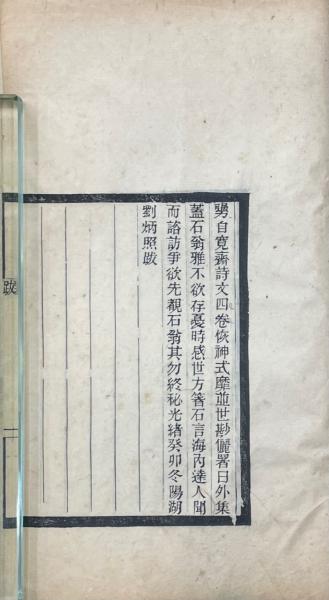 舅自寬齋詩文四卷恢神式靡並世尠儷署曰外集
蓋石翁雅不欲存憂時感世方箸石言海內達人聞
而諮訪爭欲先覩石翁其勿終祕光緖癸卯冬陽湖
劉炳照跋
跋
一